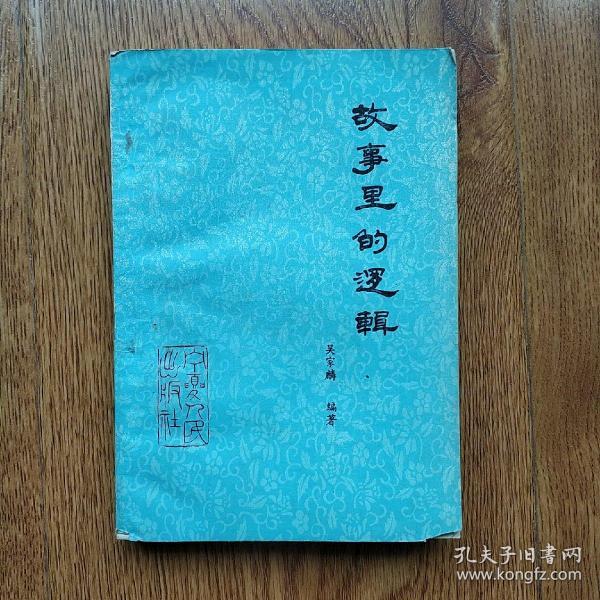 故事里的逻輯
吴家麟 编著
宁夏人民
出版社
孔夫子旧書网
www.kongfz.com